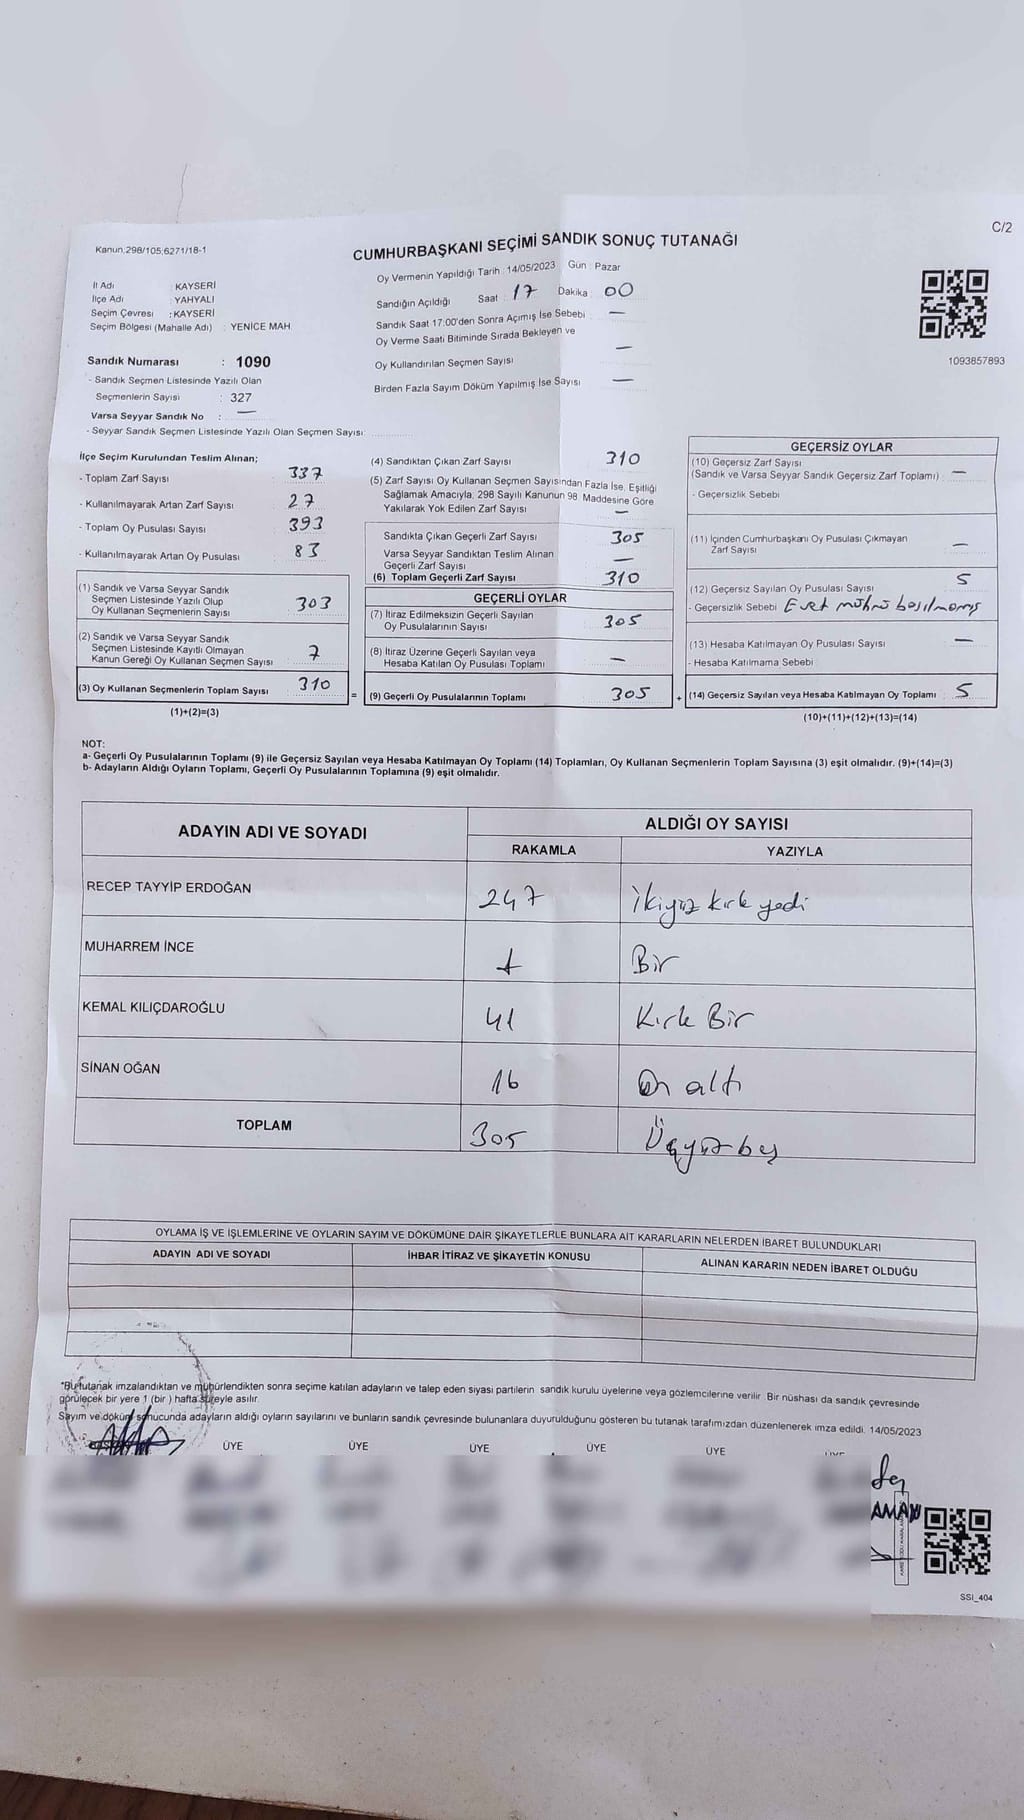 Kanun,298/105;6271/18-1
C/2
CUMHURBAŞKANI SEÇİMİ SANDIK SONUÇ TUTANAĞI
İl Adı : KAYSERİ
İlçe Adı : YAHYALI
Seçim Çevresi : KAYSERİ
Seçim Bölgesi (Mahalle Adı) : YENİCE MAH.
Sandık Numarası : 1090
- Sandık Seçmen Listesinde Yazılı Olan
Seçmenlerin Sayısı : 327
Varsa Seyyar Sandık No : —
- Seyyar Sandık Seçmen Listesinde Yazılı Olan Seçmen Sayısı:
Oy Vermenin Yapıldığı Tarih : 14/05/2023 Gün : Pazar
Sandığın Açıldığı Saat : 17 Dakika : 00
Sandık Saat 17:00'den Sonra Açımış İse Sebebi : —
Oy Verme Saati Bitiminde Sırada Bekleyen ve
Oy Kullandırılan Seçmen Sayısı —
Birden Fazla Sayım Döküm Yapılmış İse Sayısı —
1093857893
İlçe Seçim Kurulundan Teslim Alınan;
- Toplam Zarf Sayısı 337
- Kullanılmayarak Artan Zarf Sayısı 27
- Toplam Oy Pusulası Sayısı 393
- Kullanılmayarak Artan Oy Pusulası 83
(1) Sandık ve Varsa Seyyar Sandık
Seçmen Listesinde Yazılı Olup
Oy Kullanan Seçmenlerin Sayısı 303
(2) Sandık ve Varsa Seyyar Sandık
Seçmen Listesinde Kayıtlı Olmayan
Kanun Gereği Oy Kullanan Seçmen Sayısı 7
(3) Oy Kullanan Seçmenlerin Toplam Sayısı 310
(1)+(2)=(3)
(4) Sandıktan Çıkan Zarf Sayısı 310
(5) Zarf Sayısı Oy Kullanan Seçmen Sayısından Fazla İse, Eşitliği
Sağlamak Amacıyla, 298 Sayılı Kanunun 98. Maddesine Göre
Yakılarak Yok Edilen Zarf Sayısı —
Sandıkta Çıkan Geçerli Zarf Sayısı 305
Varsa Seyyar Sandıktan Teslim Alınan
Geçerli Zarf Sayısı —
(6) Toplam Geçerli Zarf Sayısı 310
GEÇERLİ OYLAR
(7) İtiraz Edilmeksizin Geçerli Sayılan
Oy Pusulalarının Sayısı 305
(8) İtiraz Üzerine Geçerli Sayılan veya
Hesaba Katılan Oy Pusulası Toplamı —
= (9) Geçerli Oy Pusulalarının Toplamı 305 +
GEÇERSİZ OYLAR
(10) Geçersiz Zarf Sayısı
(Sandık ve Varsa Seyyar Sandık Geçersiz Zarf Toplamı) : —
- Geçersizlik Sebebi
(11) İçinden Cumhurbaşkanı Oy Pusulası Çıkmayan
Zarf Sayısı —
(12) Geçersiz Sayılan Oy Pusulası Sayısı 5
- Geçersizlik Sebebi Evet mührü basılmamış
(13) Hesaba Katılmayan Oy Pusulası Sayısı —
- Hesaba Katılmama Sebebi
(14) Geçersiz Sayılan veya Hesaba Katılmayan Oy Toplamı : 5
(10)+(11)+(12)+(13)=(14)
NOT:
a- Geçerli Oy Pusulalarının Toplamı (9) ile Geçersiz Sayılan veya Hesaba Katılmayan Oy Toplamı (14) Toplamları, Oy Kullanan Seçmenlerin Toplam Sayısına (3) eşit olmalıdır. (9)+(14)=(3)
b- Adayların Aldığı Oyların Toplamı, Geçerli Oy Pusulalarının Toplamına (9) eşit olmalıdır.
ADAYIN ADI VE SOYADI
ALDIĞI OY SAYISI
RAKAMLA YAZIYLA
RECEP TAYYİP ERDOĞAN 247 İkiyüz kırk yedi
MUHARREM İNCE 1 Bir
KEMAL KILIÇDAROĞLU 41 Kırk Bir
SİNAN OĞAN 16 On altı
TOPLAM 305 Üçyüz beş
OYLAMA İŞ VE İŞLEMLERİNE VE OYLARIN SAYIM VE DÖKÜMÜNE DAİR ŞİKAYETLERLE BUNLARA AİT KARARLARIN NELERDEN İBARET BULUNDUKLARI
ADAYIN ADI VE SOYADI İHBAR İTİRAZ VE ŞİKAYETİN KONUSU ALINAN KARARIN NEDEN İBARET OLDUĞU
*Bu tutanak imzalandıktan ve mühürlendikten sonra seçime katılan adayların ve talep eden siyası partilerin sandık kurulu üyelerine veya gözlemcilerine verilir. Bir nüshası da sandık çevresinde
görülecek bir yere 1 (bir ) hafta süreyle asılır.
Sayım ve döküm sonucunda adayların aldığı oyların sayılarını ve bunların sandık çevresinde bulunanlara duyurulduğunu gösteren bu tutanak tarafımızdan düzenlenerek imza edildi. 14/05/2023
ÜYE ÜYE ÜYE ÜYE ÜYE
SSI_404